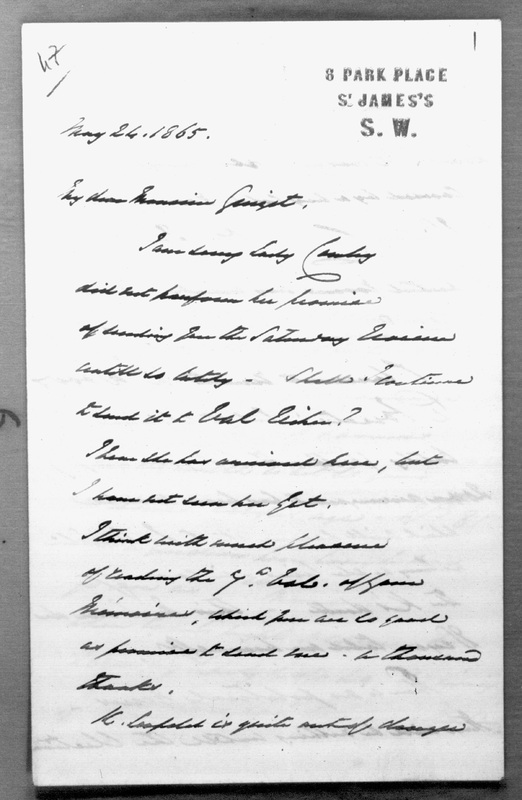 47
1
8 PARK PLACE
St JAMES'S
S. W.
May 24. 1865.
My dear Monsieur Guizot,
I am sorry Lady Cowley
did not perform her promise
of sending you the Saturday Review
until so lately – Shall I continue
to send it to Val Richer?
I hear she has arrived here, but
I have not seen her yet.
I think with much pleasure
of reading the 7th Vol. of your
Mémoires, which you are so good
as promise to send me – a thousand
thanks.
K. Leopold is quite out of danger